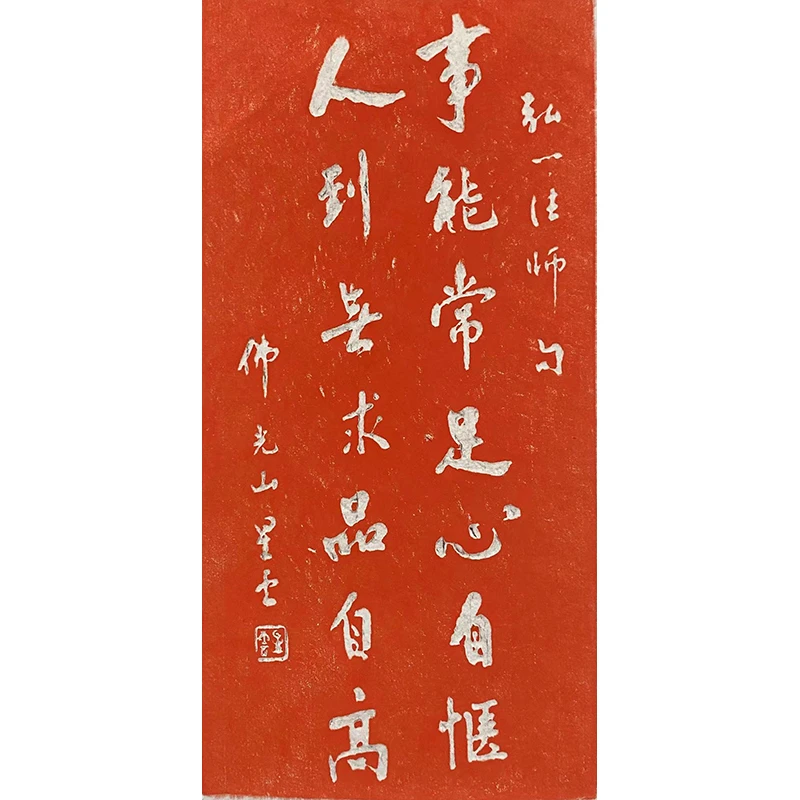 弘一法師句
事能常足心自愜
人到無求品自高
佛光山星云